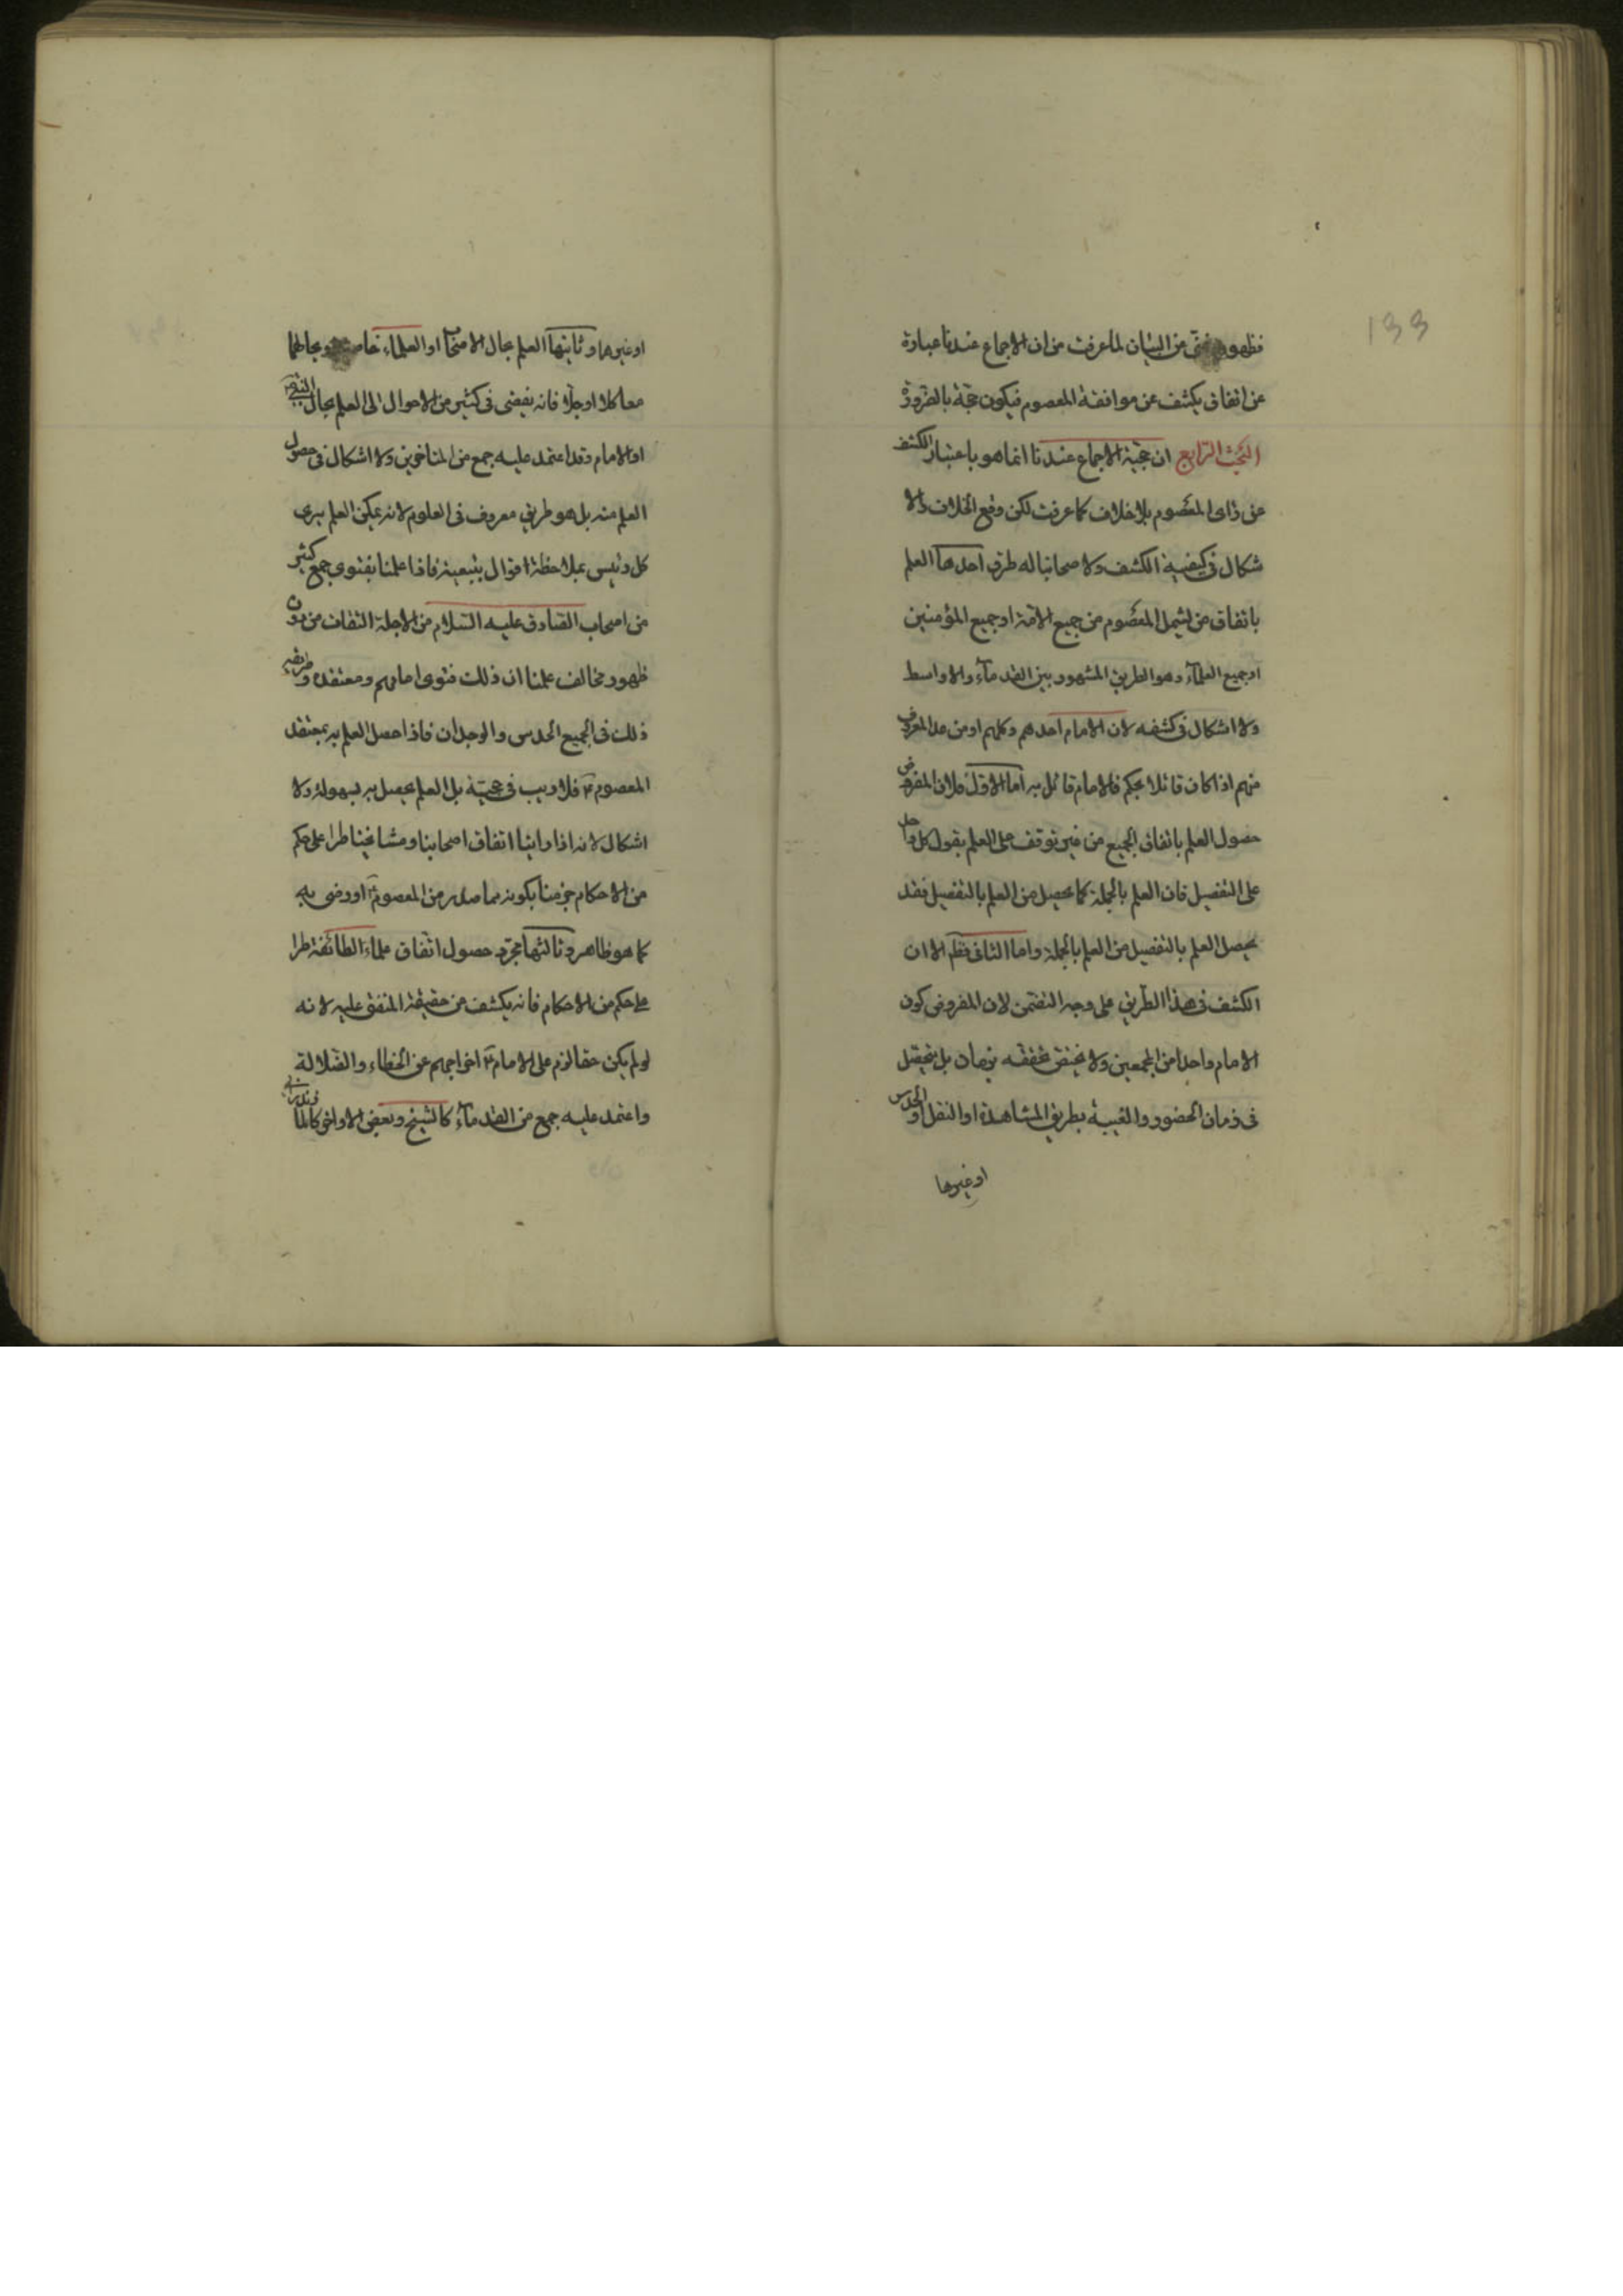 133
فظهوره غنى من البيان لما عرفت من ان الاجماع عندنا عبارة
عن اتفاق يكشف عن موافقة المعصوم فيكون حجة بالضرورة
البحث الرابع ان حجية الاجماع عندنا انما هو باعتبار الكشف
عن رأى المعصوم بلا خلاف كما عرفت لكن وقع الخلاف والا
شكال فى كيفية الكشف ولاصحابنا له طرق احدها العلم
باتفاق من يشمل المعصوم من جميع الامة او جميع المؤمنين
او جميع العلماء وهو الطريق المشهور بين القدماء والاواسط
ولا اشكال فى كشفه لان الامام احدهم وكلهم او من عدا المعروف
منهم اذا كان قائلا بحكم فالامام قائل به اما الاول فلان المفروض
حصول العلم باتفاق الجميع من غير توقف على العلم بقول كل واحد
على التفصيل فان العلم بالجملة كما يحصل من العلم بالتفصيل فقد
يحصل العلم بالتفصيل من العلم بالجملة واما الثانى فظم الا ان
الكشف فى هذا الطريق على وجه التضمن لان المفروض كون
الامام واحدا من المجمعين ولا يختص تحققه بزمان بل يتحقق
فى زمان الحضور والغيبة بطريق المشاهدة او النقل او الحدس
او غيرها
او غيرها وثانيها العلم بحال الاصحاب او العلماء خاصة او بحالهما
معا كلا او جلا فانه يفضى فى كثير من الاحوال الى العلم بحال النبى
او الامام وقد اعتمد عليه جمع من المتاخرين ولا اشكال فى حصول
العلم منه بل هو طريق معروف فى العلوم لانه يمكن العلم براى
كل رئيس بملاحظة اقوال بتبعيته فاذا علمنا بفتوى جمع كثير
من اصحاب الصادق عليه السلام من الاجلة الثقات من دون
ظهور مخالف علمنا ان ذلك فتوى امامهم ومعتقده وطريقه
ذلك فى الجميع الحدس والوجدان فاذا حصل العلم به بمعتقد
المعصوم ع فلا ريب فى حجيته بل العلم يحصل به بسهولة ولا
اشكال لانه اذا راينا اتفاق اصحابنا ومشايخنا طرا على حكم
من الاحكام جزمنا بكونه مما صدر من المعصوم ع او رضى به
كما هو ظاهر وثالثها مجرد حصول اتفاق علماء الطائفة طرا
على حكم من الاحكام فانه يكشف عن حقيقة المتفق عليه لانه
لو لم يكن حقا لزم على الامام ع اخراجهم عن الخطاء والضلالة
واعتمد عليه جمع من القدماء كالشيخ وبعض الاواخر كالمازندرانى